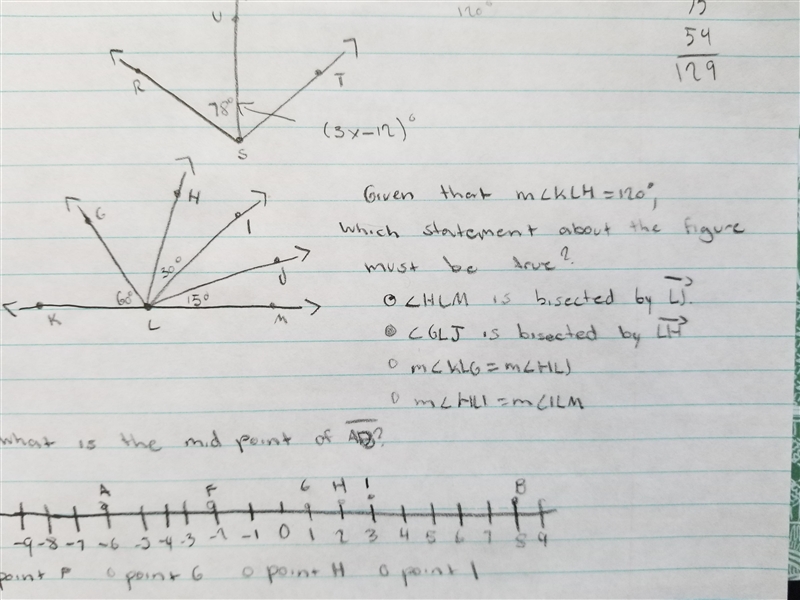 U
120°
54
129
R
T
78°
(3x-12)°
S
H
G
I
Given that m∠KLH=120°,
which statement about the figure
must be true?
30°
J
60°
15°
K
L
M
∠HLM is bisected by LJ.
∠GLJ is bisected by LH
m∠KLG=m∠HLJ
m∠HLI=m∠ILM
What is the mid point of AB?
A F G H I B
-9 -8 -7 -6 -5 -4 -3 -2 -1 0 1 2 3 4 5 6 7 8 9
point F point G point H point I